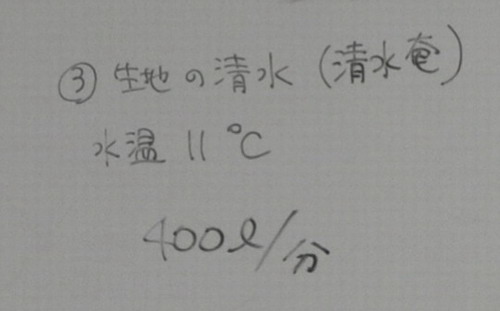 ③ 生地の清水 (清水庵)
水温 11℃
400ℓ/分